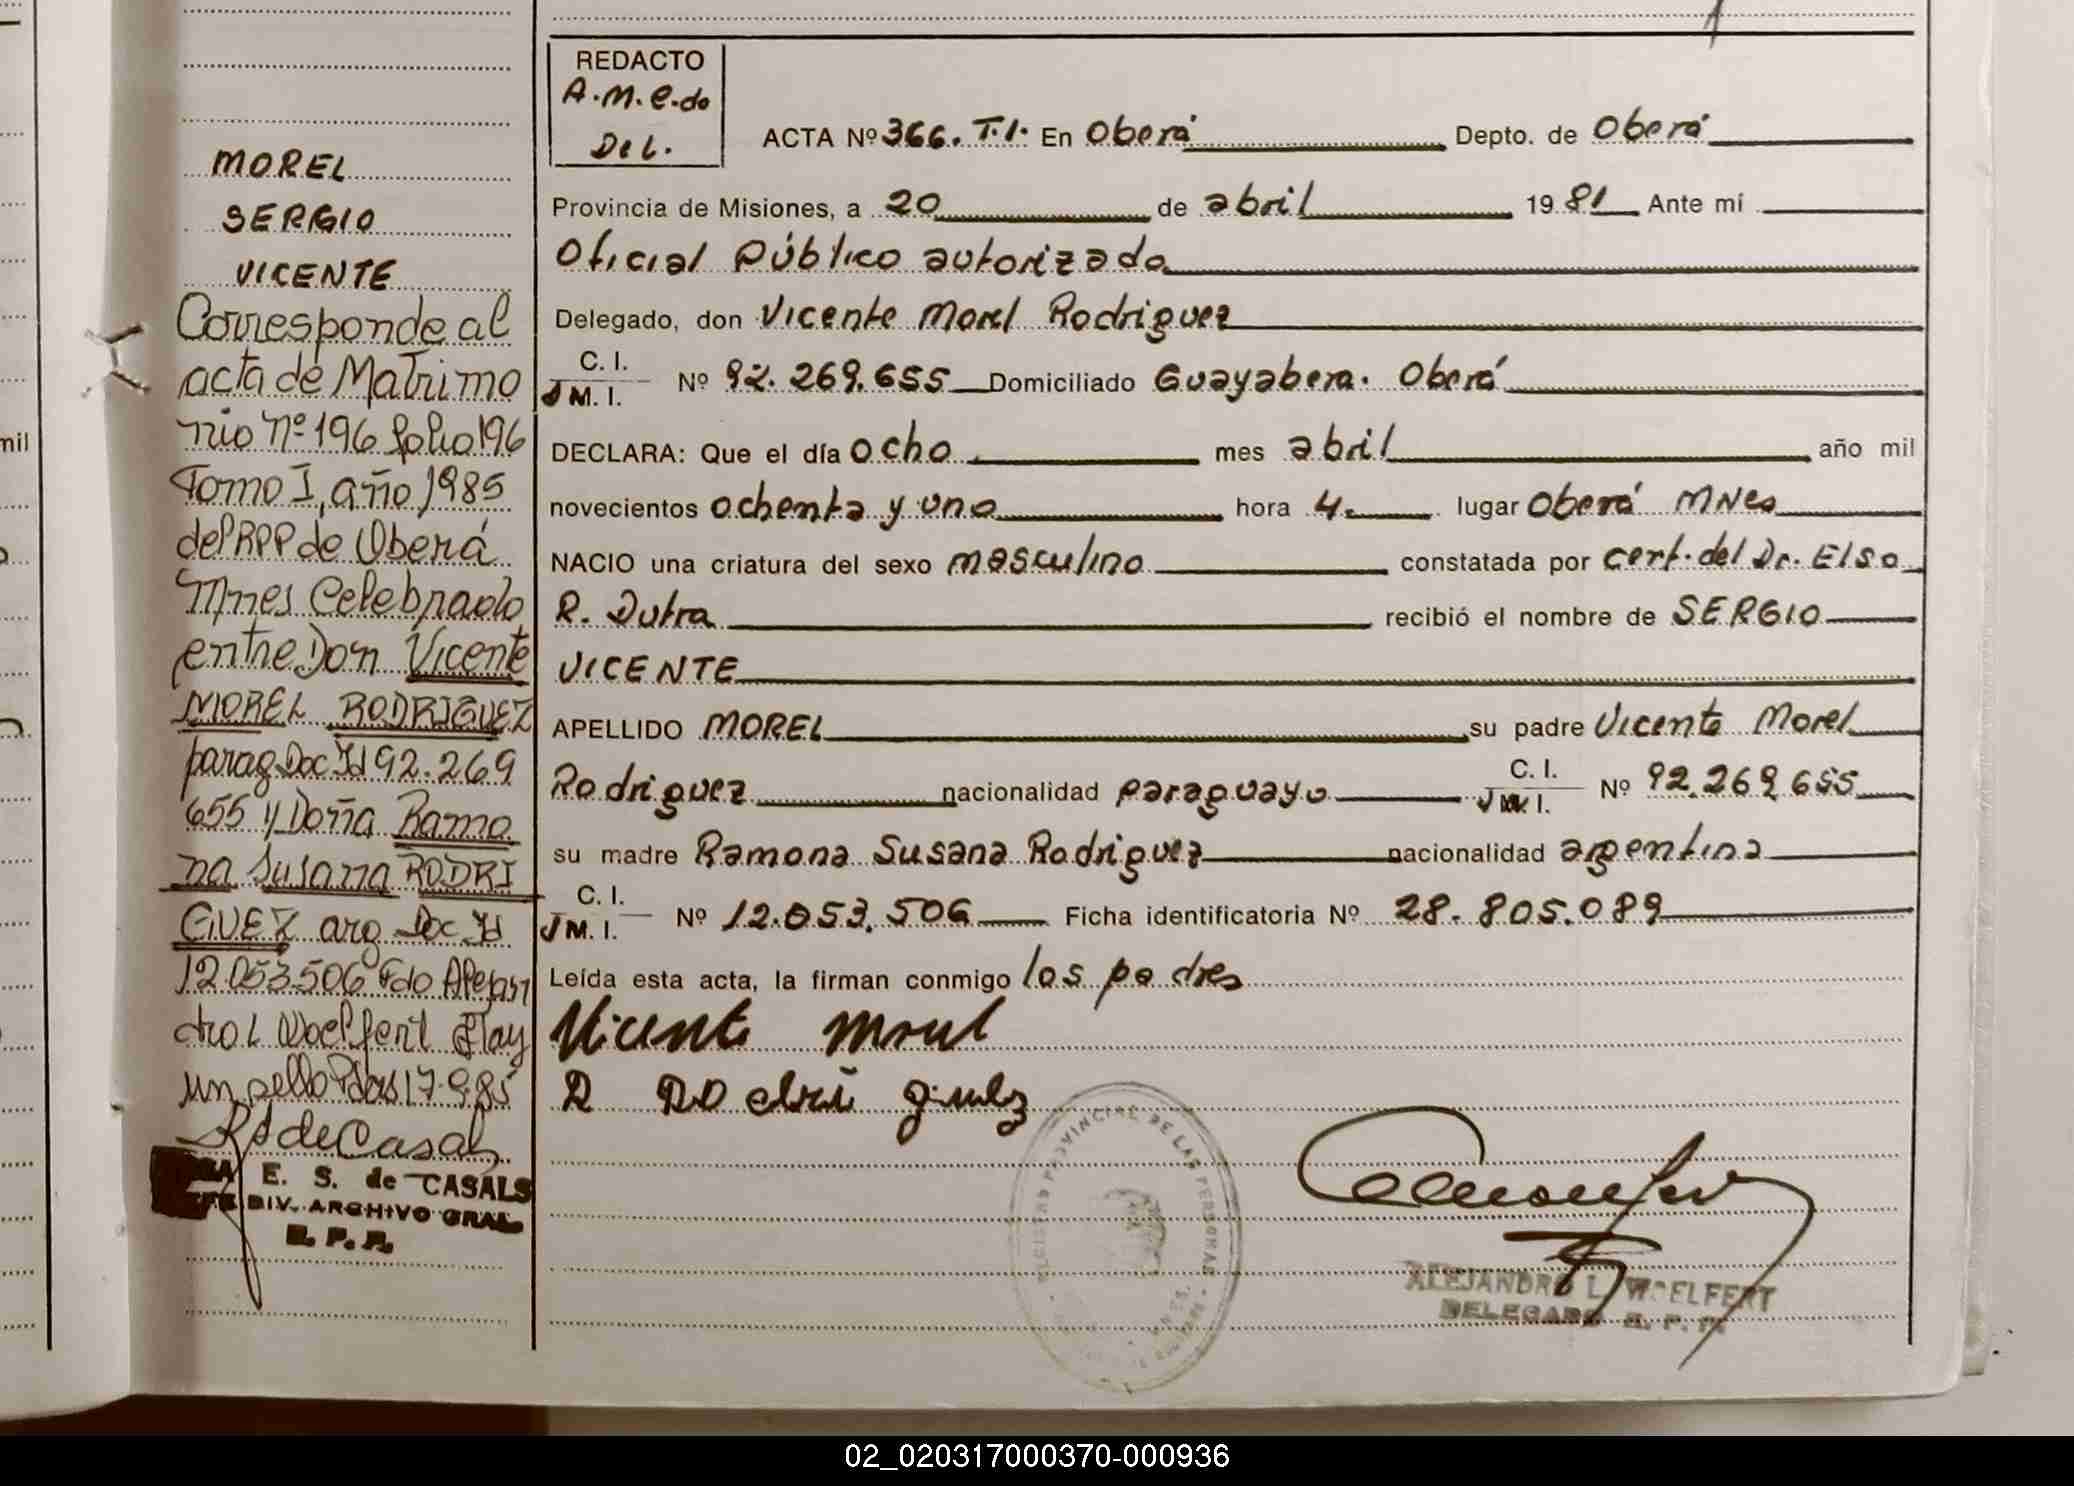 MOREL
SERGIO
VICENTE
Corresponde al
acta de Matrimo
nio Nº 196 folio 196
Tomo I, año 1985
del RPP de Oberá
Mnes Celebrado
entre Don Vicente
MOREL RODRIGUEZ
parag Doc Id 92.269
655 y Doña Ramo
na Susana RODRI
GUEZ arg Doc Id
12.053.506 Fdo Alejan
dro L Woelfert Hay
un sello Pdas 17.9.85
E. S. de CASALS
DIV. ARCHIVO GRAL.
R. P. P.
REDACTO
A.M.C.do
Del.
ACTA Nº 366. T.I. En Oberá Depto. de Oberá
Provincia de Misiones, a 20 de abril 1981 Ante mí
Oficial Público autorizado
Delegado, don Vicente Morel Rodriguez
C. I.
M. I. Nº 92.269.655 Domiciliado Guayabera. Oberá
DECLARA: Que el día ocho mes abril año mil
novecientos ochenta y uno hora 4. lugar Oberá MNes
NACIO una criatura del sexo masculino constatada por cert. del Dr. Elso
R. Dutra recibió el nombre de SERGIO
VICENTE
APELLIDO MOREL su padre Vicente Morel
Rodriguez nacionalidad paraguayo C. I. M. I. Nº 92.269.655
su madre Ramona Susana Rodriguez nacionalidad argentina
C. I.
M. I. Nº 12.053.506 Ficha identificatoria Nº 28.805.089
Leída esta acta, la firman conmigo los padres
Vicente Morel
REGISTRO PROVINCIAL DE LAS PERSONAS
ALEJANDRO L. WOELFERT
DELEGADO R. P. P.
02_020317000370-000936